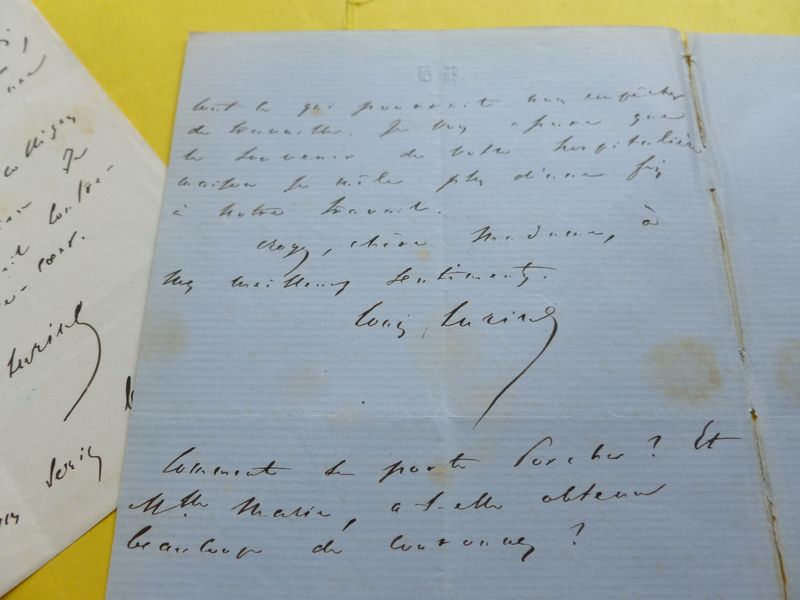 tout ce qui pourrait nous empêcher
de travailler. Je vous assure que
le souvenir de votre hospitalière
maison se mêle plus d'une fois
à notre travail.
Croyez, chère Madame, à
mes meilleurs sentiments.
Louis Lurine
Comment se porte Porcher ? Et
Mlle Marie, a-t-elle obtenu
beaucoup de couronnes ?
Je
Lurine